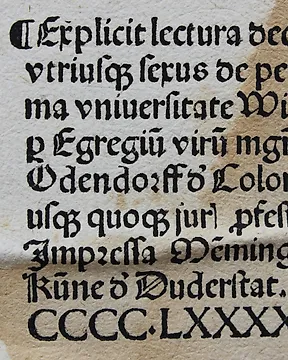 ¶ Explicit lectura dec
vtriusqꝫ sexus de pe
ma vniuersitate Wi
ꝑ Egregiū virū mgr̄
Odendorff đ Colon
usqꝫ quoqꝫ jur ꝓfes
Impressa Mēming
Kūne đ Duderstat.
CCCC.LXXXX